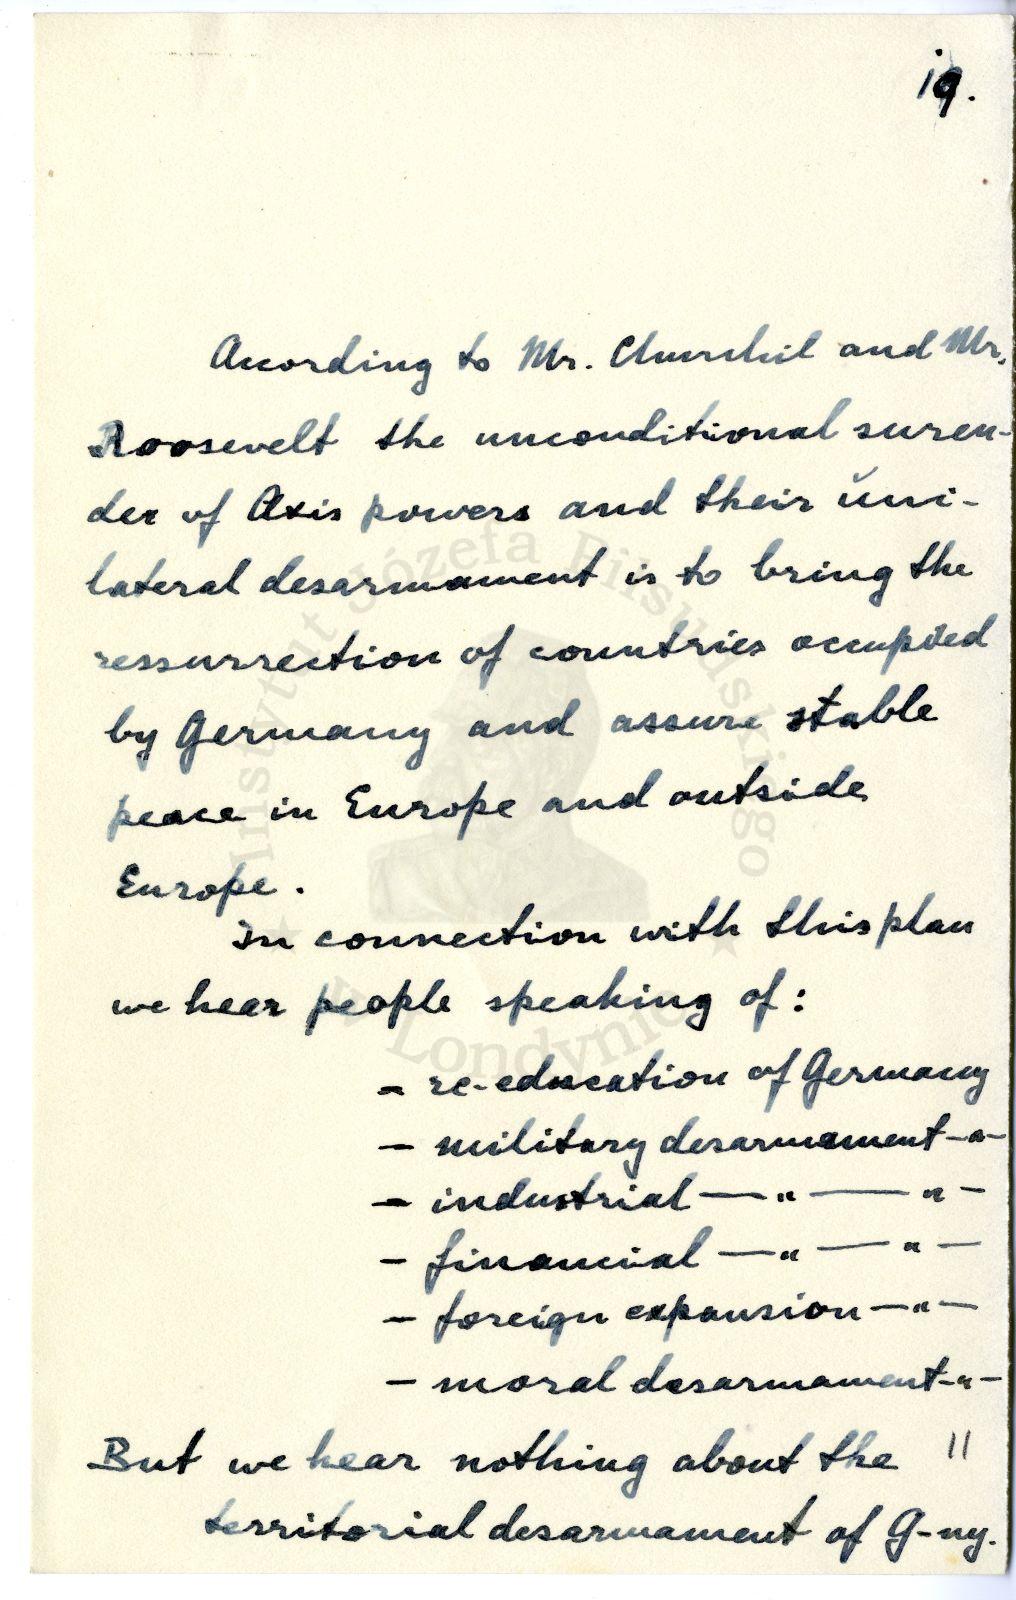 19.
According to Mr. Churchil and Mr.
Roosevelt the unconditional suren-
der of Axis powers and their uni-
lateral desarmament is to bring the
ressurrection of countries occupied
by Germany and assure stable
peace in Europe and outside
Europe.
In connection with this plan
we hear people speaking of:
- re-education of Germany
- military desarmament -"-
- industrial — " — " -
- financial — " — " —
- foreign expansion — " —
- moral desarmament - " -
But we hear nothing about the 11
territorial desarmament of G-ny.
Instytut Józefa Piłsudskiego
w Londynie